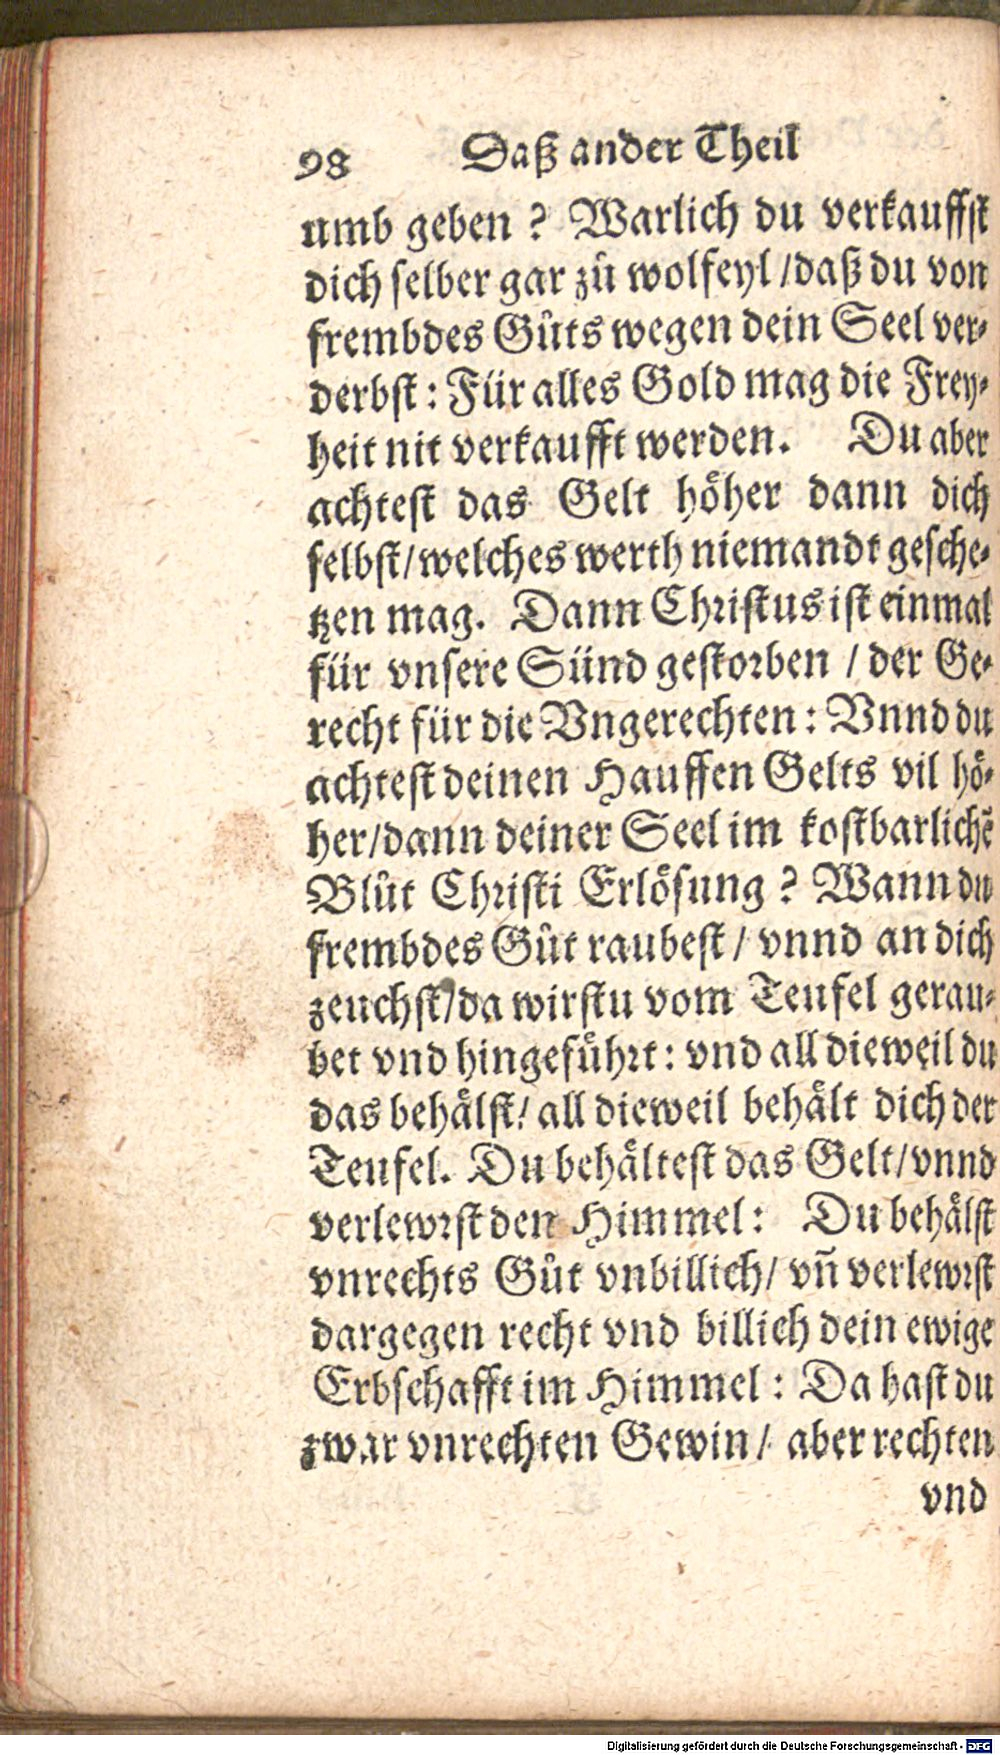 98 Daß ander Theil
umb geben ? Warlich du verkauffst
dich selber gar zů wolfeyl /daß du von
frembdes Gůts wegen dein Seel ver-
derbst : Für alles Gold mag die Frey-
heit nit verkaufft werden. Du aber
achtest das Gelt höher dann dich
selbst/welches werth niemandt gesche-
tzen mag. Dann Christus ist einmal
für vnsere Sünd gestorben / der Ge-
recht für die Vngerechten : Vnnd du
achtest deinen Hauffen Gelts vil hö-
her/dann deiner Seel im kostbarlichē
Blůt Christi Erlösung ? Wann du
frembdes Gůt raubest / vnnd an dich
zeuchst/da wirstu vom Teufel gerau-
bet vnd hingeführt : vnd all dieweil du
das behälst/ all dieweil behält dich der
Teufel. Du behältest das Gelt/vnnd
verlewrst den Himmel : Du behälst
vnrechts Gůt vnbillich/ vñ verlewrst
dargegen recht vnd billich dein ewige
Erbschafft im Himmel : Da hast du
zwar vnrechten Gewin / aber rechten
vnd
Digitalisierung gefördert durch die Deutsche Forschungsgemeinschaft - DFG